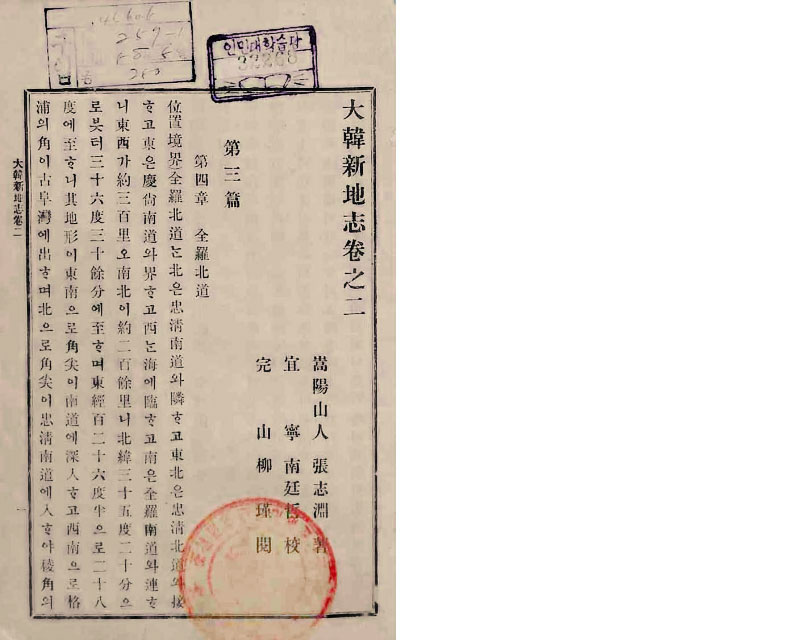 인민대학습당
32268
大韓新地志卷之二
嵩陽山人 張志淵 著
宜寧 南廷哲 校
完山 柳瑾 閱
第三篇
第四章 全羅北道
位置境界(全羅北道는北은忠淸南道와隣ᄒᆞ고東北은忠淸北道와接
ᄒᆞ고東은慶尙南道와界ᄒᆞ고西는海에臨ᄒᆞ고南은全羅南道와連ᄒᆞ
니東西가約三百里오南北이約二百餘里니北緯三十五度二十分으
로븟터三十六度三十餘分에至ᄒᆞ며東經百二十六度半으로二十八
度에至ᄒᆞ니其地形이東南으로角尖이南道에深入ᄒᆞ고西南으로格
浦의角이古阜灣에出ᄒᆞ며北으로角尖이忠淸南道에入ᄒᆞ야稜角의
大韓新地志卷二